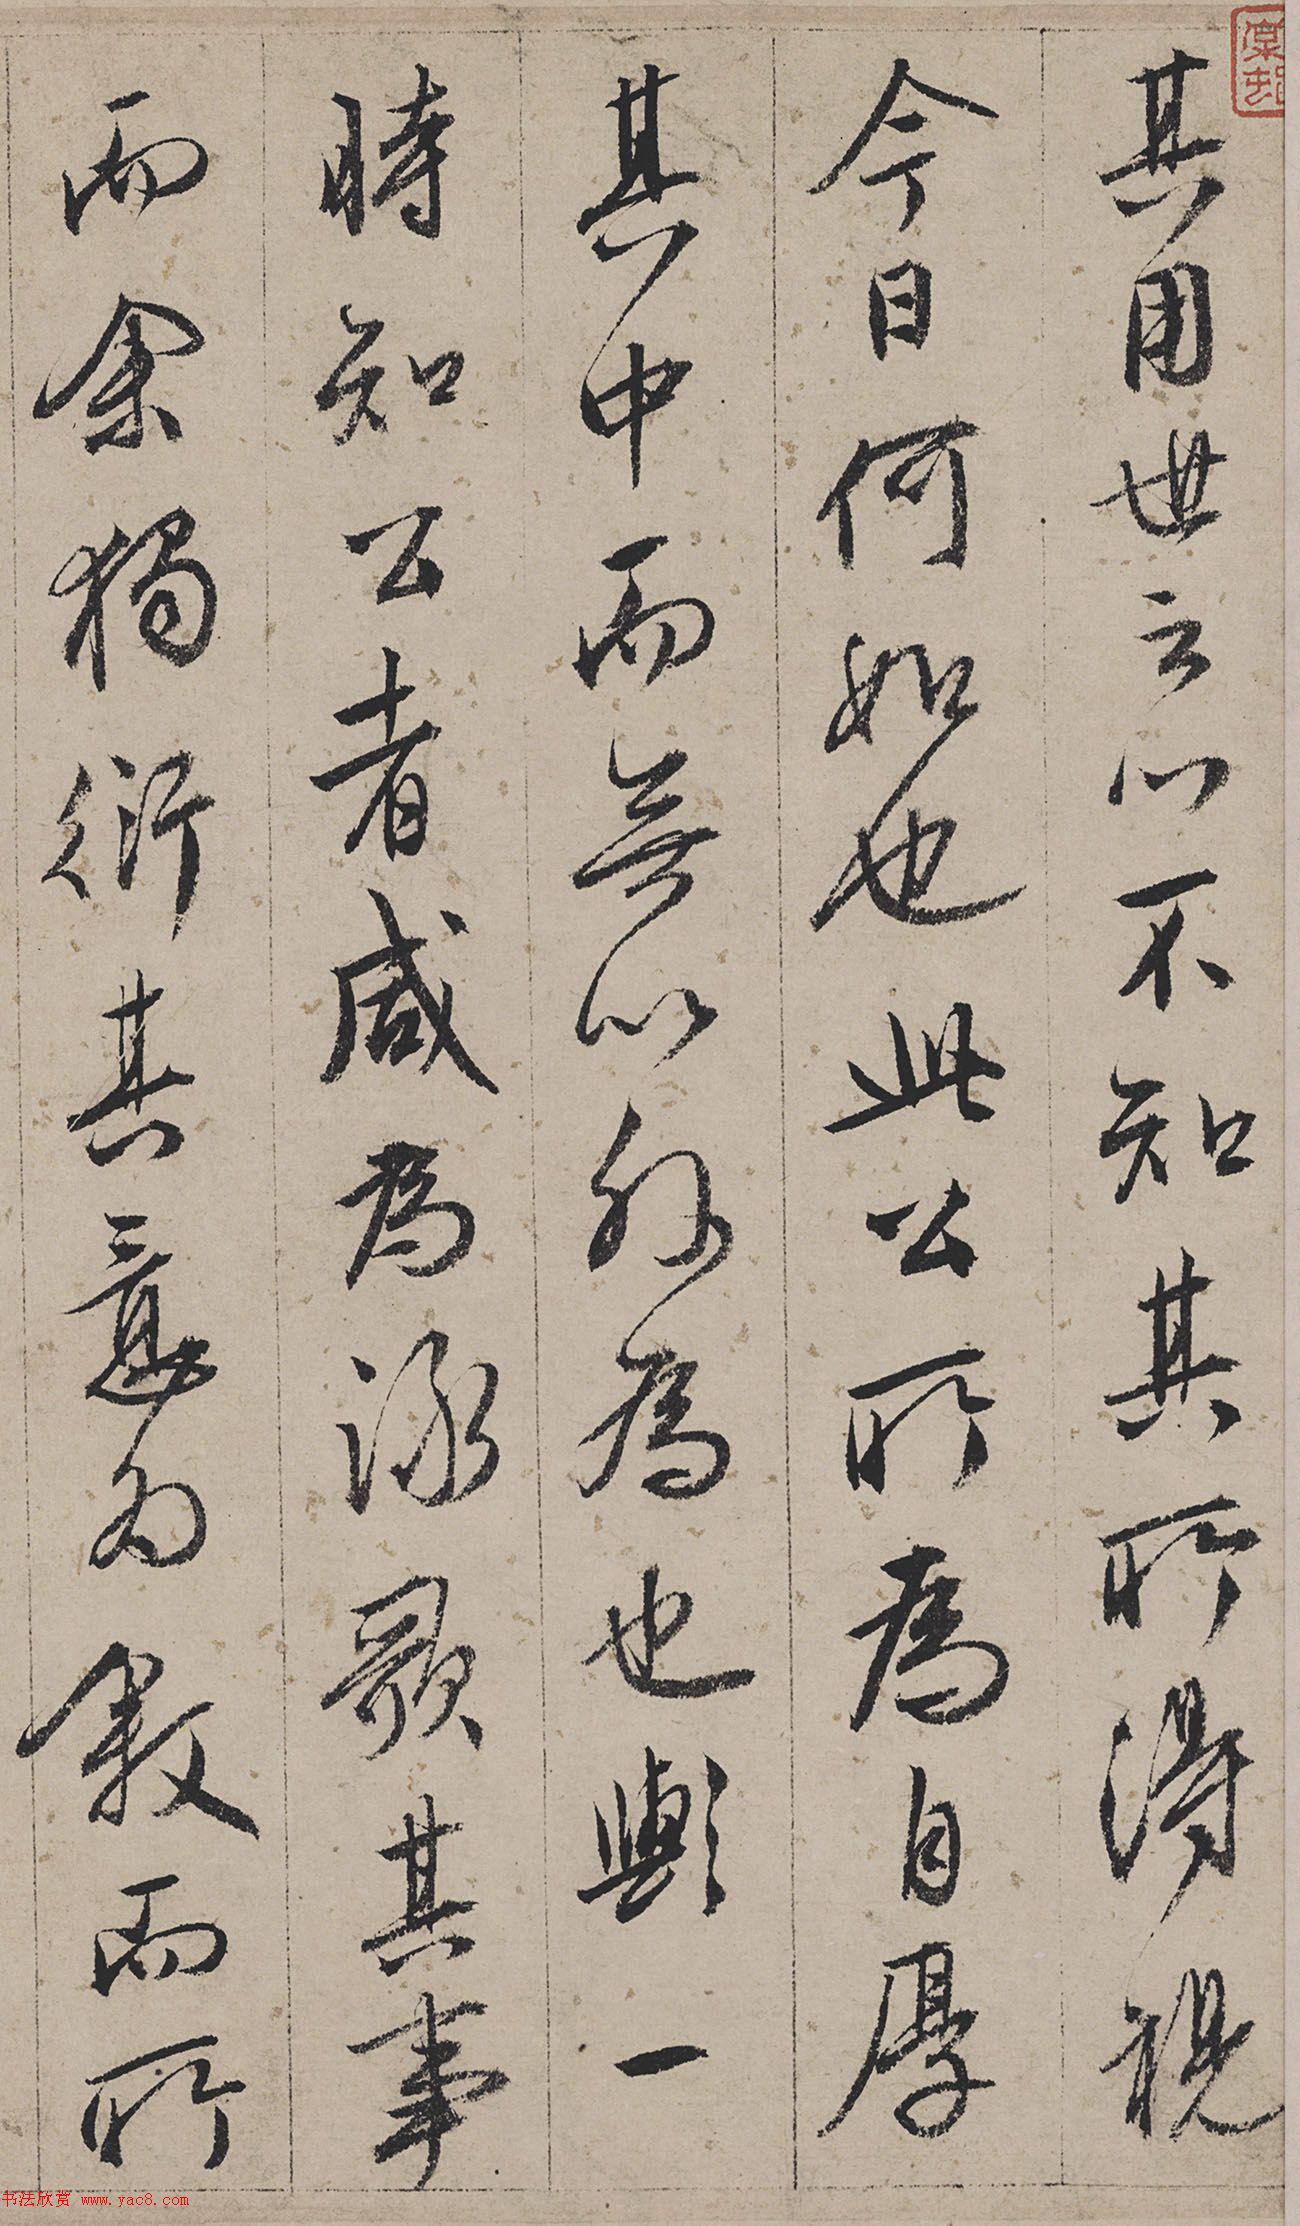 其用世之心不知其所得視
今日何如也此公所為自厚
其中而無以外為也與一
時知公者咸為詠歌其事
而余獨衍其意為敘而所
书法欣赏 www.yac8.com